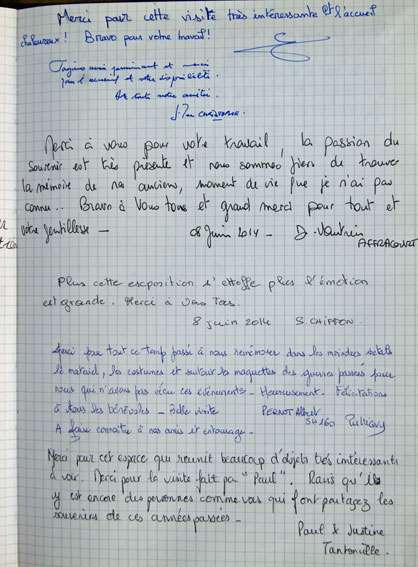 Merci pour cette visite très intéressante et l'accueil
chaleureux! Bravo pour votre travail!
Toujours aussi passionnant et merci
pour l'accueil et votre disponibilité.
toute notre amitié.
Merci à vous pour votre travail, la passion du
souvenir est très présente et nous sommes fiers de trouver
la mémoire de nos anciens, moment de vie que je n'ai pas
connu... Bravo à Vous tous et grand merci pour tout et
votre gentillesse -
08 Juin 2014 - D. Vautrin
AFFRACOURT
Plus cette exposition s'étoffe plus l'émotion
est grande. Merci à vous Tous.
8 juin 2014 S. CHIPPON
Merci pour tout ce temps passé à nous remémorer dans les moindres détails
le matériel, les costumes et surtout la maquettes des guerres passées pour
nous qui n'avons pas vécu ces évènements - Heureusement. Félicitations
à tous les bénévoles - Belle visite PERNOT Albert
A faire connaître à nos amis et entourage - 54160 Pulligny
Merci pour cet espace qui reunit beaucoup d'objets très intéressants
à voir. Merci pour la visite fait par "Paul". Ravis qu'il
y est encore des personnes comme vous qui font partagez les
souvenirs de ces années passées -
Paul & Justine
Tantonville